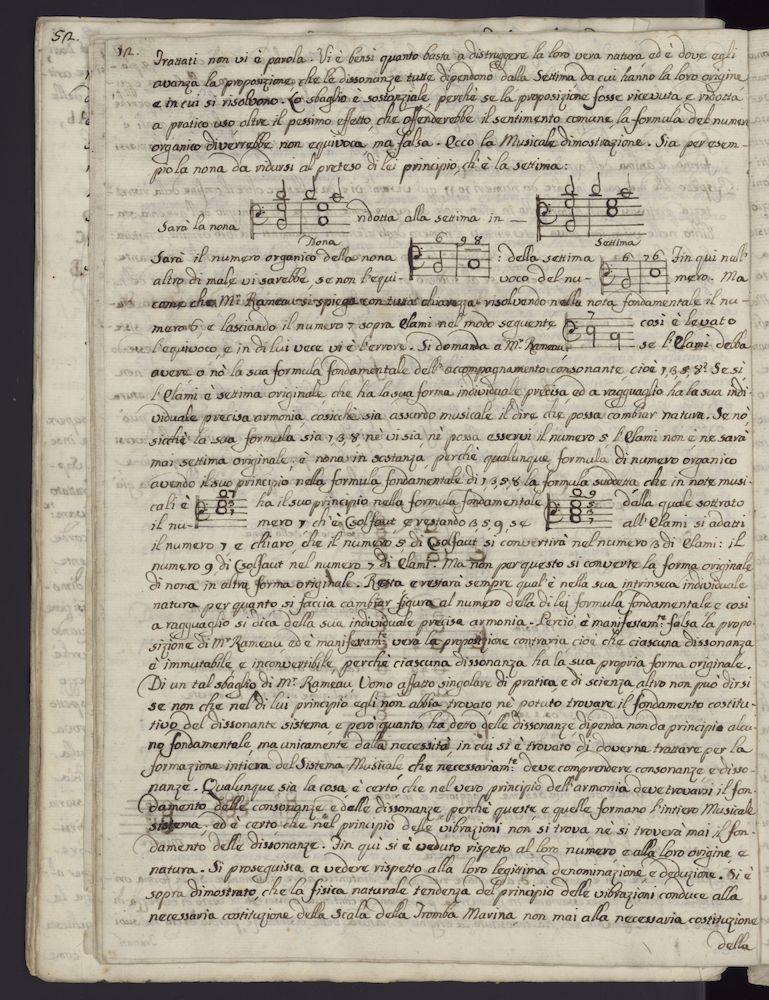 52.
12.
Trattati non vi è parola. Vi è bensì quanto basta a distruggere la loro vera natura ed è dove egli
avanza la proposizione, che le dissonanze tutte dipendono dalla Settima da cui hanno la loro origine,
e in cui si risolvono. Lo sbaglio è sostanziale perchè se la proposizione fosse ricevuta, e ridotta
a pratico uso oltre il pessimo effetto, che offenderebbe il sentimento comune, la formula del numero
organico diverrebbe non equivoca, ma falsa. Ecco la Musicale dimostrazione. Sia per esem-
pio la nona da ridursi al preteso di lei principio, ch'è la settima:
Sarà la nona
ridotta alla settima in
Nona
Settima
Sarà il numero organico della nona
6 9 8
: della settima
6 7 6
Fin qui null'
altro di male vi sarebbe, se non l'equi-
voco del nu-
mero. Ma
come che Mr. Rameau si spiega con tutta chiarezza risolvendo nella nota fondamentale il nu-
mero 6 e lasciando il numero 7 sopra Elami nel modo seguente
7
così è levato
l'equivoco, e in di lui vece vi è l'errore. Si domanda a Mr. Rameau,
se l'Elami debba
avere o nò la sua formula fondamentale dell'accompagnamento consonante cioè 1,3,5,8? Se sì
l'Elami è settima originale che ha la sua forma individuale precisa ed a ragguaglio ha la sua indi-
viduale precisa armonia cosicchè sia assurdo musicale il dire che possa cambiar natura. Se nò
sicchè la sua formula sia 1,3,8 nè vi sia nè possa esservi il numero 5 l'Elami non è ne sarà
mai settima originale, è nona in sostanza, perchè qualunque formula di numero organico
avendo il suo principio nella formula fondamentale di 1,3,5,8 la formula suddetta che in note musi-
cali è
ha il suo principio nella formula fondamentale
dalla quale sottratto
il nu-
mero 1 ch'è Csolfaut, e restando 3, 5, 9, se
all'Elami si adatti
il numero 1 è chiaro, che il numero 5 di Gsolfaut si convertirà nel numero 3 di Elami: il
numero 9 di Csolfaut nel numero 7 di Elami. Ma non per questo si converte la forma originale
di nona in altra forma originale. Resta e restarà sempre qual'è nella sua intrinseca individuale
natura per quanto si faccia cambiar figura al numero della di lei formula fondamentale e così
a ragguaglio si dica della sua individuale precisa armonia. Perciò è manifestam.te falsa la propo-
sizione di Mr Rameau ed è manifestam.te vera la proposizione contraria cioè che ciascuna dissonanza
è immutabile e inconvertibile, perchè ciascuna dissonanza ha la sua propria forma originale.
Di un tal sbaglio di Mr. Rameau Uomo affatto singolare di pratica, e di scienza altro non può dirsi
se non che nel di lui principio egli non abbia trovato nè potuto trovare il fondamento costitu-
tivo del dissonante sistema, e però quanto ha detto delle dissonanze dipenda non da principio alcu-
no fondamentale, ma unicamente dalla necessità, in cui si è trovato di doverne trattare per la
formazione intiera del Sistema Musicale che necessariam.te deve comprendere consonanze e disso-
nanze. Qualunque sia la cosa, è certo che nel vero principio dell'armonia deve trovarsi il fon-
damento delle consonanze e delle dissonanze perchè queste e quelle formano l'intiero Musicale
sistema, ed è certo che nel principio delle vibrazioni non si trova, nè si troverà mai il fon-
damento delle dissonanze. Fin qui si è veduto rispetto al loro numero e alla loro origine, e
natura. Si proseguisca a vedere rispetto alla loro legittima denominazione e deduzione. Si è
sopra dimostrato, che la fisica naturale tendenza del principio delle vibrazioni conduce alla
necessaria costituzione della Scala della Tromba Marina, non mai alla necessaria costituzione
della